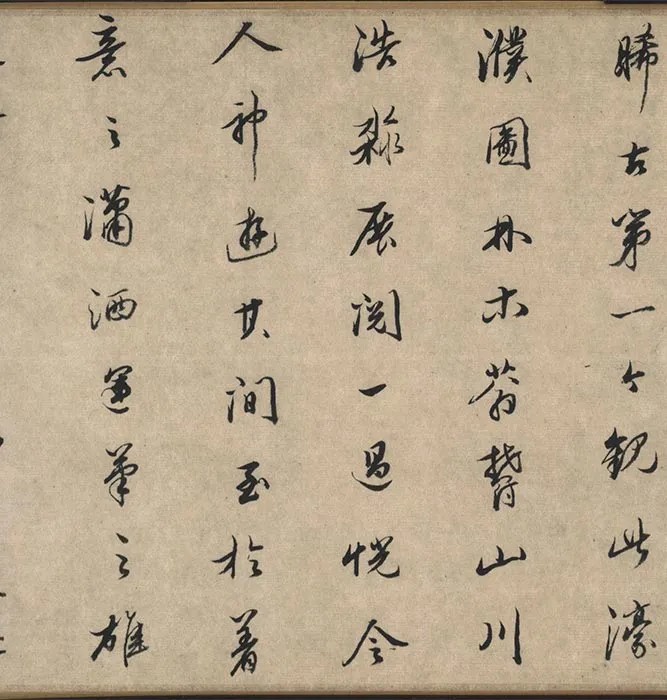 晞古第一今觀此濠
濮圖林木蓊鬱山川
浩淼展閱一過恍令
人神遊其間至於着
意之瀟洒運筆之雄